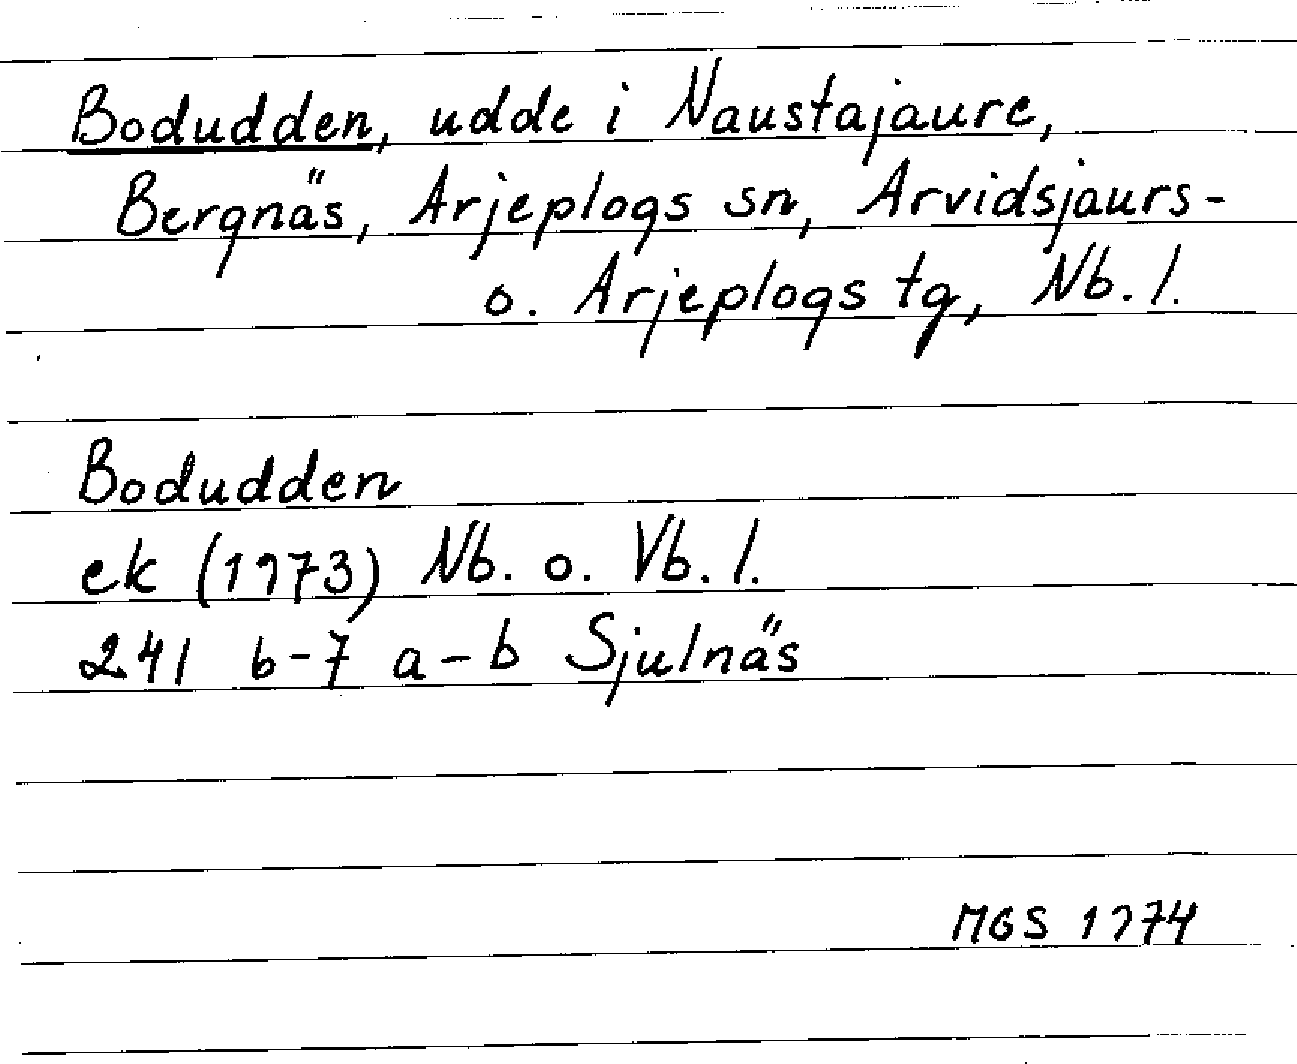 Bodudden, udde i Naustajaure,
Bergnäs, Arjeplogs sn, Arvidsjaurs-
o. Arjeplogs tg, Nb. l.
Bodudden
ek (1973) Nb. o. Vb. l.
241 6-7 a-b Sjulnäs
MGS 1974